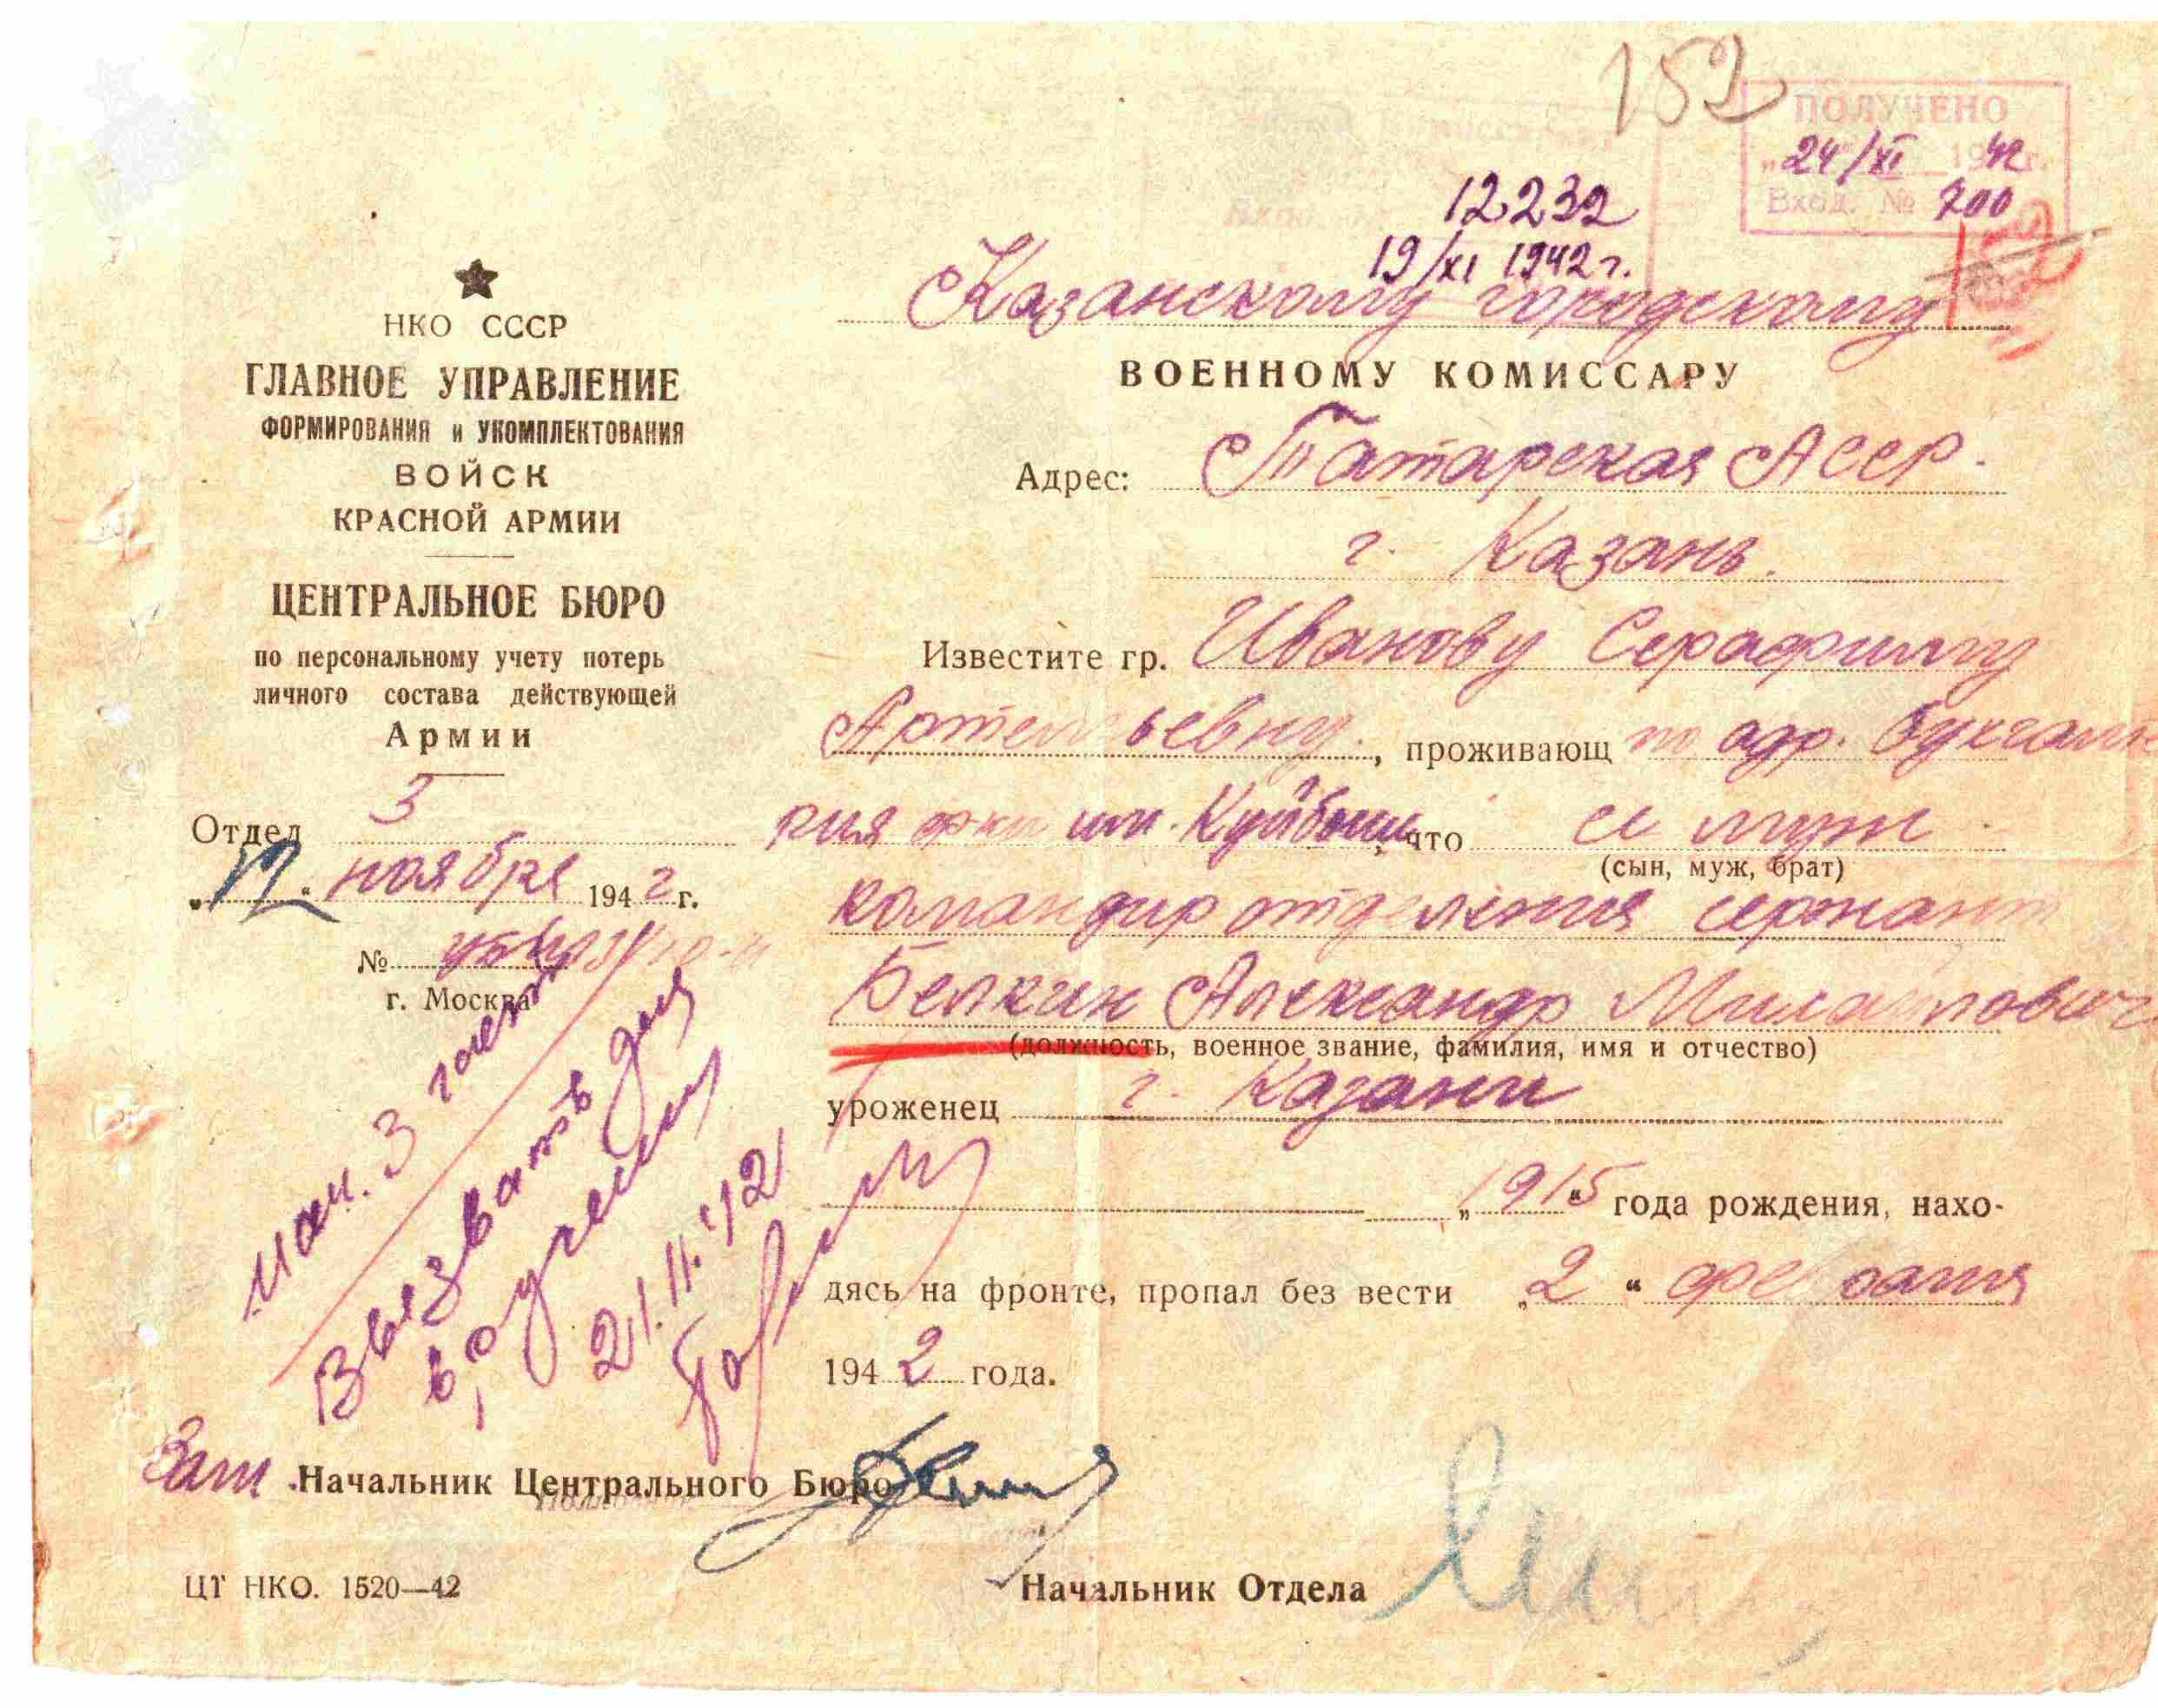 152
ПОЛУЧЕНО
„24/XI 1942г.
Вход. № 700
12232
19/XI 1942 г.
НКО СССР
ГЛАВНОЕ УПРАВЛЕНИЕ
ФОРМИРОВАНИЯ и УКОМПЛЕКТОВАНИЯ
ВОЙСК
КРАСНОЙ АРМИИ
ЦЕНТРАЛЬНОЕ БЮРО
по персональному учету потерь
личного состава действующей
Армии
Отдел 3
„12“ ноября 1942 г.
№
г. Москва
Казанскому городскому
ВОЕННОМУ КОМИССАРУ
Адрес: Татарская АССР.
г. Казань.
Известите гр. Иванову Серафиму
Артемьевну, проживающ по адр. Бухгалте
рия ф-ки им. Куйбыш, что ее муж
(сын, муж, брат)
командир отделения сержант
Белкин Александр
(должность, военное звание, фамилия, имя и отчество)
уроженец г. Казани
„1915“ года рождения, нахо-
дясь на фронте, пропал без вести „2“ февраля
1942 года.
нач. 3 части
Вызвать для
вручения
21.11.42
Зам. Начальник Центрального Бюро
Начальник Отдела
ЦТ НКО. 1520—42